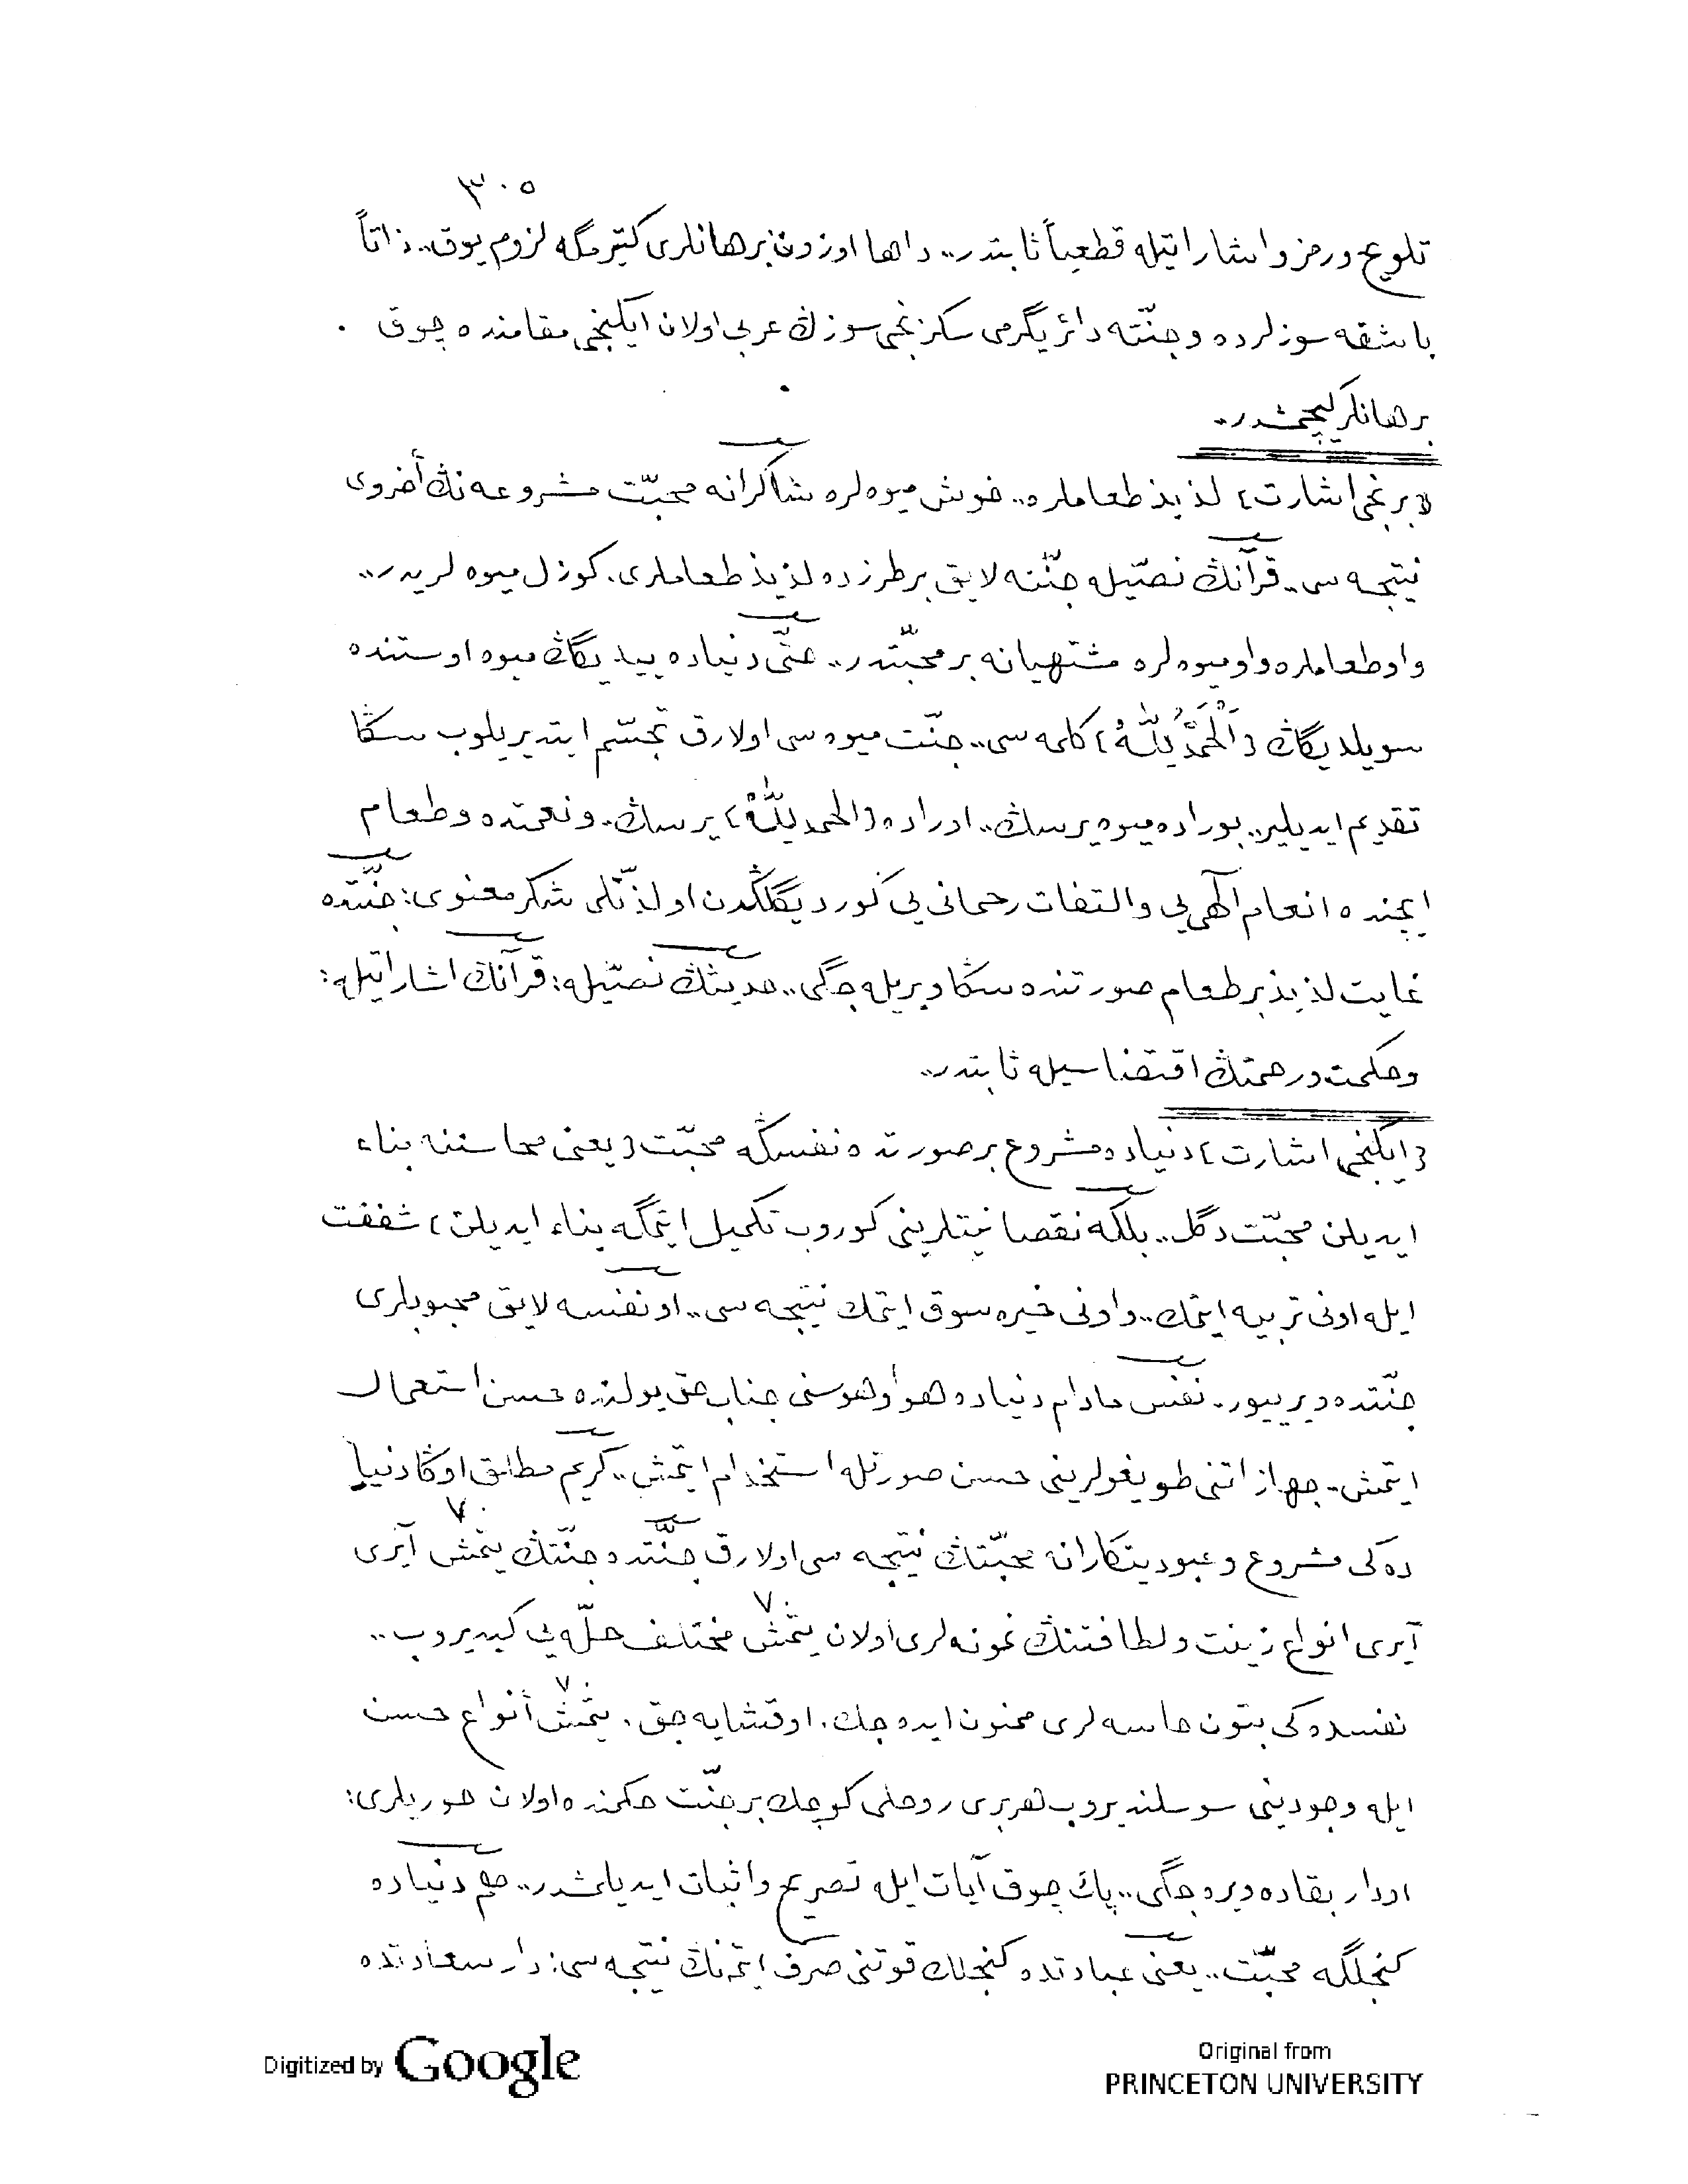 ٣٠٥
تلويح و رمز و اشاراتيله قطعياً ثابتدر.. داها اوزون برهانلرى كتيرمگه لزوم يوق.. ذاتاً
باشقه سوزلرده و جنّته دائر يگرمى سكزنجى سوزڭ عربى اولان ايكنجى مقامنده چوق
برهانلر كچمشدر..
﴿برنجى اشارت﴾ لذيذ طعاملره.. خوش ميوه لره شاكرانه محبّت مشروعه نڭ أخروى
نتيجه سى.. قرآنڭ نصّيله جنّته لايق بر طرزده لذيذ طعاملرى. كوزل ميوه لريدر..
و او طعاملره و او ميوه لره مشتهيانه بر محبّتدر.. حتّى دنياده ييديگڭ ميوه اوستنده
سويلديگڭ ﴿اَلْحَمْدُ لِلّٰهْ﴾ كلمه سى.. جنّت ميوه سى اولارق تجسّم ايتديريلوب سڭا
تقديم ايديلير.. بوراده ميوه يرسڭ.. اوراده ﴿الحمد لِلّٰهْ﴾ يرسڭ.. و نعمتده و طعام
ايچنده انعام آلهى يى و التفات رحمانى يى كورديگڭدن او لذّتلى شكر معنوى: جنّتده
غايت لذيذ بر طعام صورتنده سڭا ويريله جگى.. حديثڭ نصّيله: قرآنڭ اشاراتيله:
و حكمت و رحمتڭ اقتضاسيله ثابتدر..
﴿ايكنجى اشارت﴾ دنياده مشروع بر صورتده نفسڭه محبّت ﴿يعنى محاسننه بناء
ايديلن محبّت دگل.. بلكه نقصانيتلرينى كوروب تكميل ايتمگه بناء ايديلن﴾ شفقت
ايله اونى تربيه ايتمك.. و اونى خيره سوق ايتمك نتيجه سى.. او نفسه لايق محبوبلرى
جنّتده ويرييور. نفس مادام دنياده هوا و هوسنى جناب حق يولنده حسن استعمال
ايتمش. جهازاتنى طويغولرينى حسن صورتله استخدام ايتمش.. كريم مطلق اوڭا دنيا
ده كى مشروع و عبوديتكارانه محبّتڭ نتيجه سى اولارق جنّتده جنّتڭ يتمش آيرى
٧٠
آيرى انواع زينت و لطافتنڭ نمونه لرى اولان يتمش مختلف حلّه يى كيديروب..
٧٠
نفسده كى بتون حاسه لرى ممنون ايده جك. اوقشايه جق. يتمش أنواع حسن
٧٠
ايله وجودينى سوسلنديروب هر برى روحلى كوچك بر جنّت حكمنده اولان حوريلرى:
او دار بقاده ويره جگى.. پك چوق آيات ايله تصريح و اثبات ايديلمشدر.. هم دنياده
كنجلگه محبّت.. يعنى عبادتده كنجلك قوتنى صرف ايتمنڭ نتيجه سى: دار سعادتده
Digitized by Google
Original from
PRINCETON UNIVERSITY